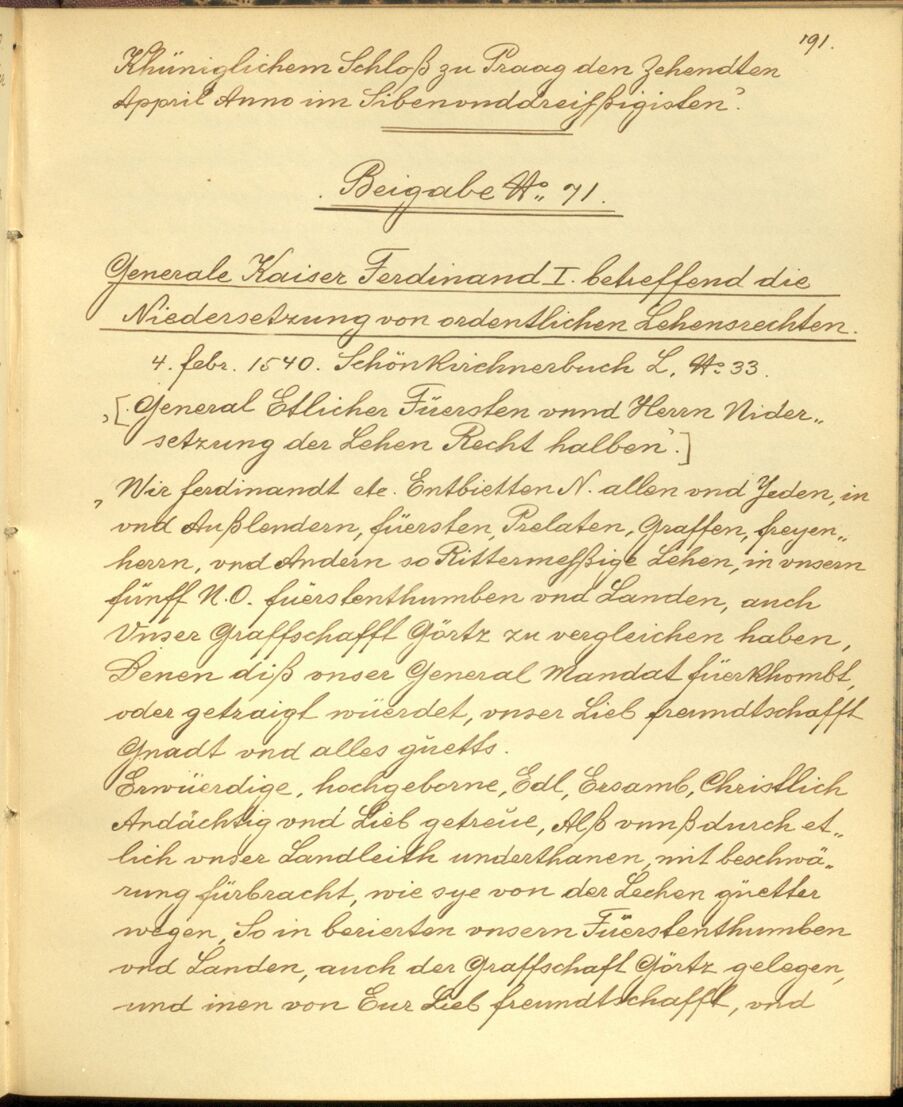 191.
Khüniglichem Schloß zu Praag den Zehendten
Appril Anno im Sibenvnddreissßigisten".
Beigabe No. 71.
Generale Kaiser Ferdinand I. betreffend die
Niedersetzung von ordentlichen Lehensrechten.
4. febr. 1540. Schönkirchnerbuch L. No. 33.
„[General Etlicher Füersten vnnd Herrn Nider„
setzung der Lehen Recht halben".]
„Wir ferdinandt etc. Entbietten N. allen vnd Yeden, in
vnd Außlendern, füersten, Prelaten, Graffen, freyen„
herrn, vnd Andern so Rittermeßßige Lehen, in vnsern
fünff N.O. füerstenthumben vnd Landen, auch
Vnser Graffschafft Görtz zu vergleichen haben,
Denen diß vnser General Mandat füerkhombt,
oder getzaigt wüerdet, vnser Lieb freundtschafft
Gnadt vnd alles güetts.
Erwüerdige, hochgeborne, Edl, Ersamb, Christlich
Andächtig vnd Lieb getreüe, Alß vnnß durch et„
lich vnser Landleith underthanen, mit beschwä„
rung fürbracht, wie sye von der Lechen güetter
wegen, So in berierten vnsern Füerstenthumben
vnd Landen, auch der Graffschaft Görtz gelegen,
und inen von Eur Lieb freundtschafft, vnd